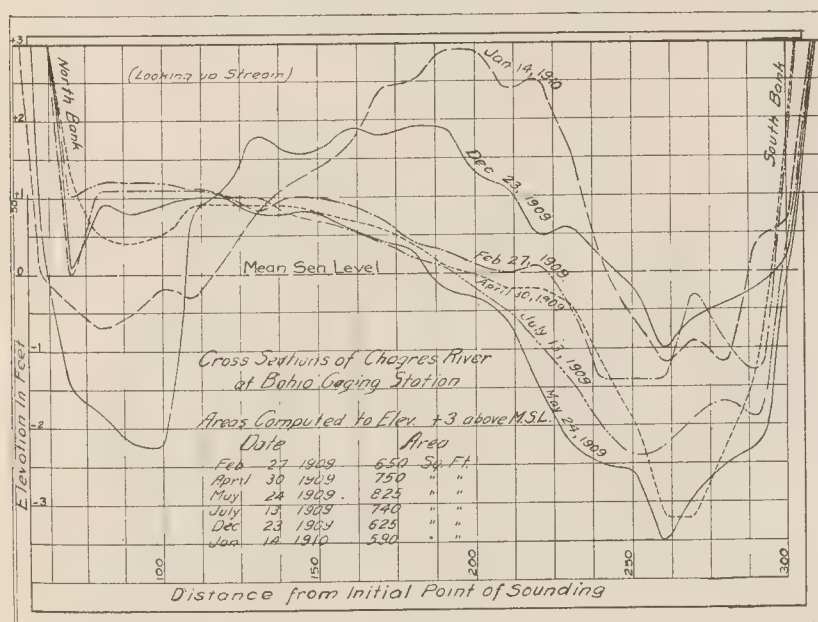 +3
+2
+1
50
0
-1
-2
-3
Elevation In Feet
North Bank
(Looking up Stream)
Jan 14, 1910
South Bank
Dec 23, 1909
Mean Sea Level
Feb 27, 1909
April 30, 1909
July 13, 1909
May 24, 1909
Cross Sections of Chagres River
at Bohio Gaging Station
Areas Computed to Elev. +3 above M.S.L.
Date Area
Feb 27 1909 650 Sq. Ft.
April 30 1909 750 " "
May 24 1909. 825 " "
July 13 1909 740 " "
Dec 23 1909 625 " "
Jan 14 1910 590 " "
100 150 200 250 300
Distance from Initial Point of Sounding